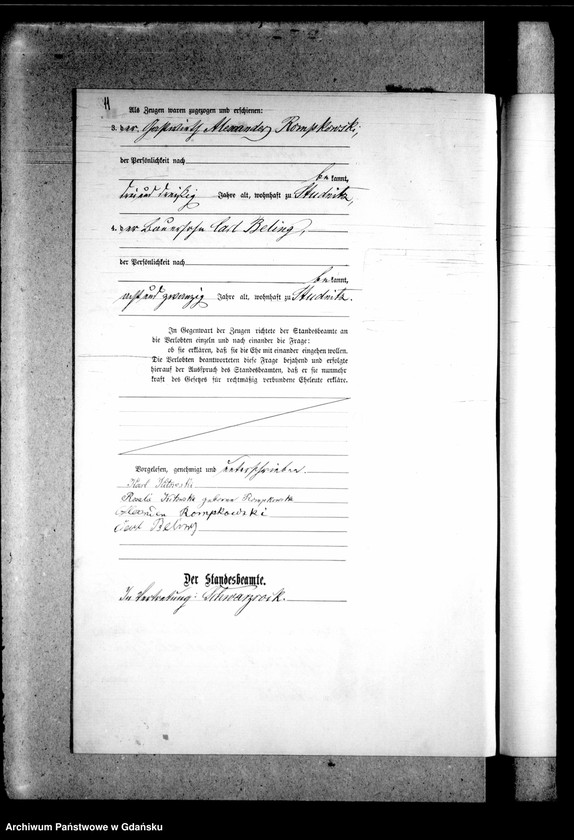 Als Zeugen waren zugezogen und erschienen:
3. der Alexander Rompkowski,
der Persönlichkeit nach
be kannt,
drei und dreißig Jahre alt, wohnhaft zu Studnitz,
4. der Bauersohn Carl Beling,
der Persönlichkeit nach
be kannt,
acht und zwanzig Jahre alt, wohnhaft zu Studnitz.
In Gegenwart der Zeugen richtete der Standesbeamte an
die Verlobten einzeln und nach einander die Frage:
ob sie erklären, daß sie die Ehe mit einander eingehen wollen.
Die Verlobten beantworteten diese Frage bejahend und erfolgte
hierauf der Ausspruch des Standesbeamten, daß er sie nunmehr
kraft des Gesetzes für rechtmäßig verbundene Eheleute erkläre.
Vorgelesen, genehmigt und unterschrieben.
Karl Kitowski
Kitowska geborene Rompkowska
Alexander Rompkowski
Carl Beling
Der Standesbeamte.
In Vertretung:
Archiwum Państwowe w Gdańsku